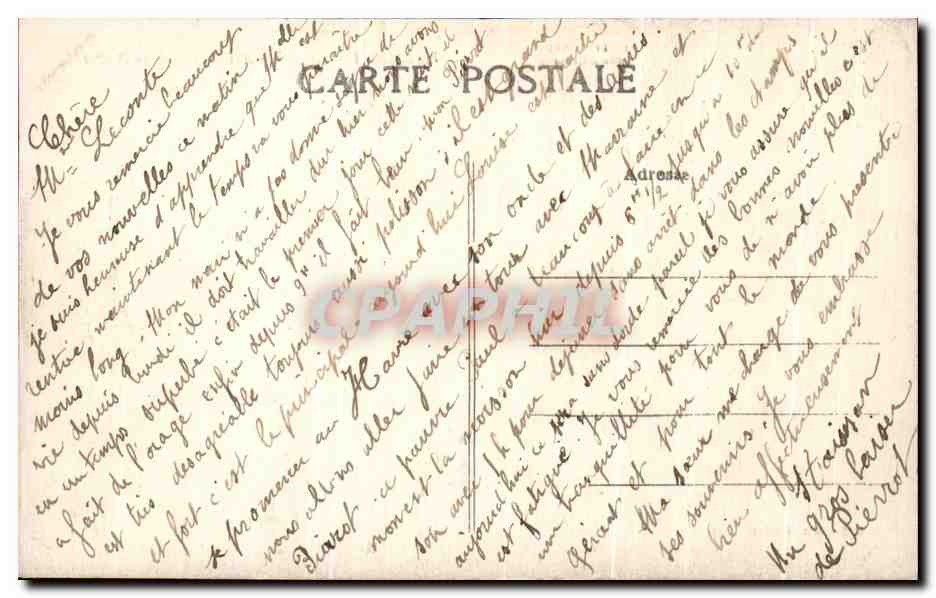 CARTE POSTALE
Adresse
CPAPHIL
Chère
Mme Leconte
Je vous remercie beaucoup
de vos nouvelles ce matin
je suis heureuse d'apprendre que Mlle est
rentrée maintenant le temps va vous paraître
moins long Mon mari n'a pas donné signe de
vie depuis lundi il doit travailler dur hier nous avons
eu un temps superbe c'était le premier jour
a fait de l'orage enfin depuis 9h il fait beau mon Pierrot
est très désagréable toujours aussi polisson s'il est grand
et fort c'est le principal aujourd'hui Louise est
se promener au Havre avec son oncle et des
nous allons aller faire un tour avec Marraine et
Pierrot ce pauvre
mon est la moisson beaucoup à faire en
son avec 1h pour déjeuner depuis 8h 1/2 jusqu'à 10h
aujourd'hui ce sera sans arrêt dans les champs
est fatigué une vie pareil je vous assure qu'il
un tranquillité Je vous remercie des bonnes nouvelles c'est
Gérant et pour vous de n'avoir plus de
pour tout le monde
Ma sœur me charge de vous présenter
ses souvenirs. Je vous embrasse
bien affectueusement
Un gros baiser
de Pierrot